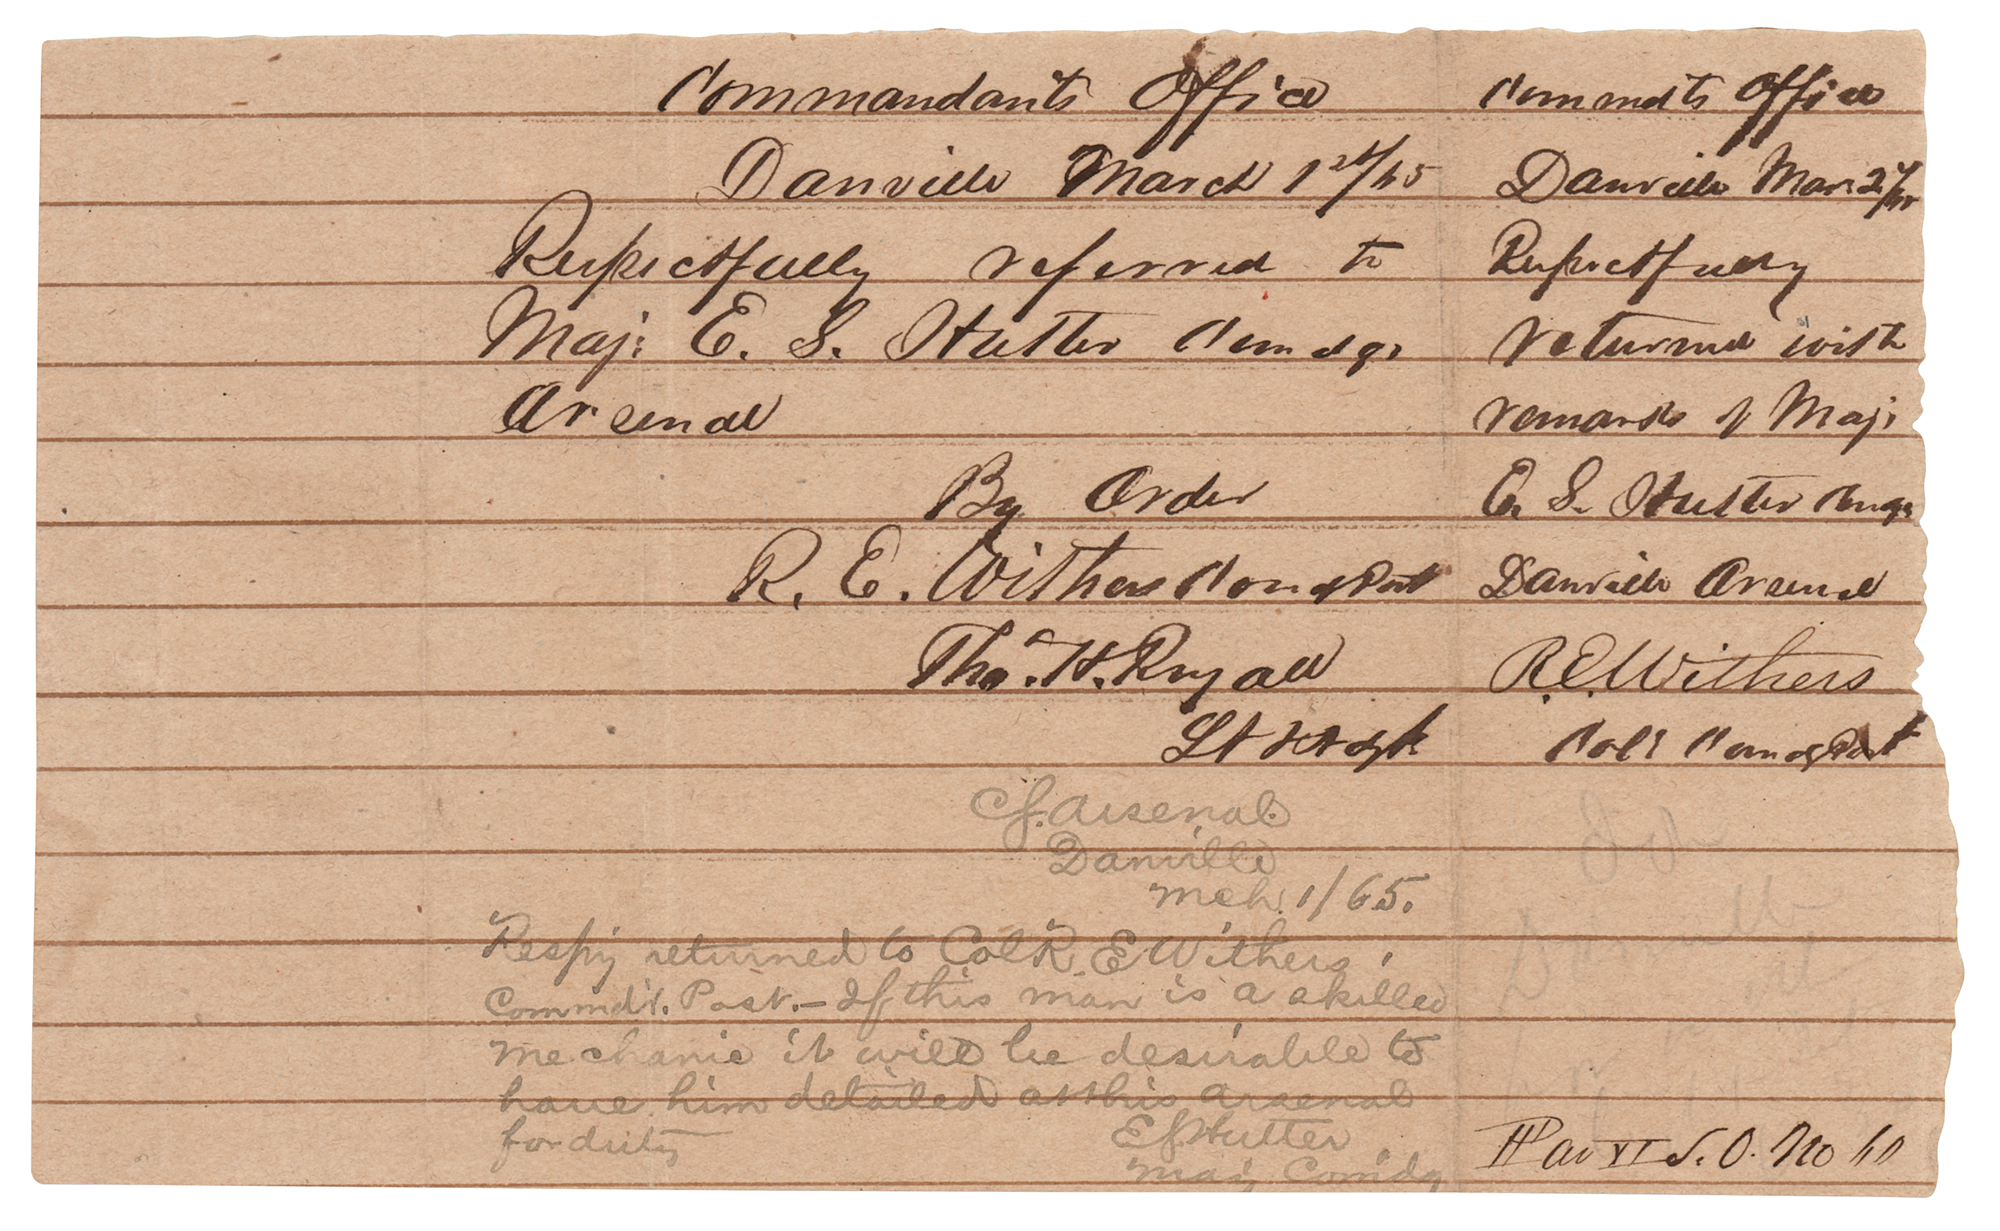 Commandants Office
Danville March 1st/65
Respectfully referred to
Maj: E. S. Hutter Comdg.
Arsenal
By Order
R. E. Withers Comdg Post
Thos. H. Ryall
Lt
C.S. Arsenal.
Danville
Mch. 1/65.
Respy returned to Col R. E Withers,
Commd't. Post. — If this man is a skilled
mechanic it will be desirable to
have him detailed at this Arsenal
for duty
E S Hutter
Maj Comdg
Commdts Office
Danville Mar. 2d/65
Respectfully
returned with
remarks of Maj:
E. S. Hutter Comg.
Danville Arsenal
R. E. Withers
Col: Comdg Post
Par XI S. O. No 60